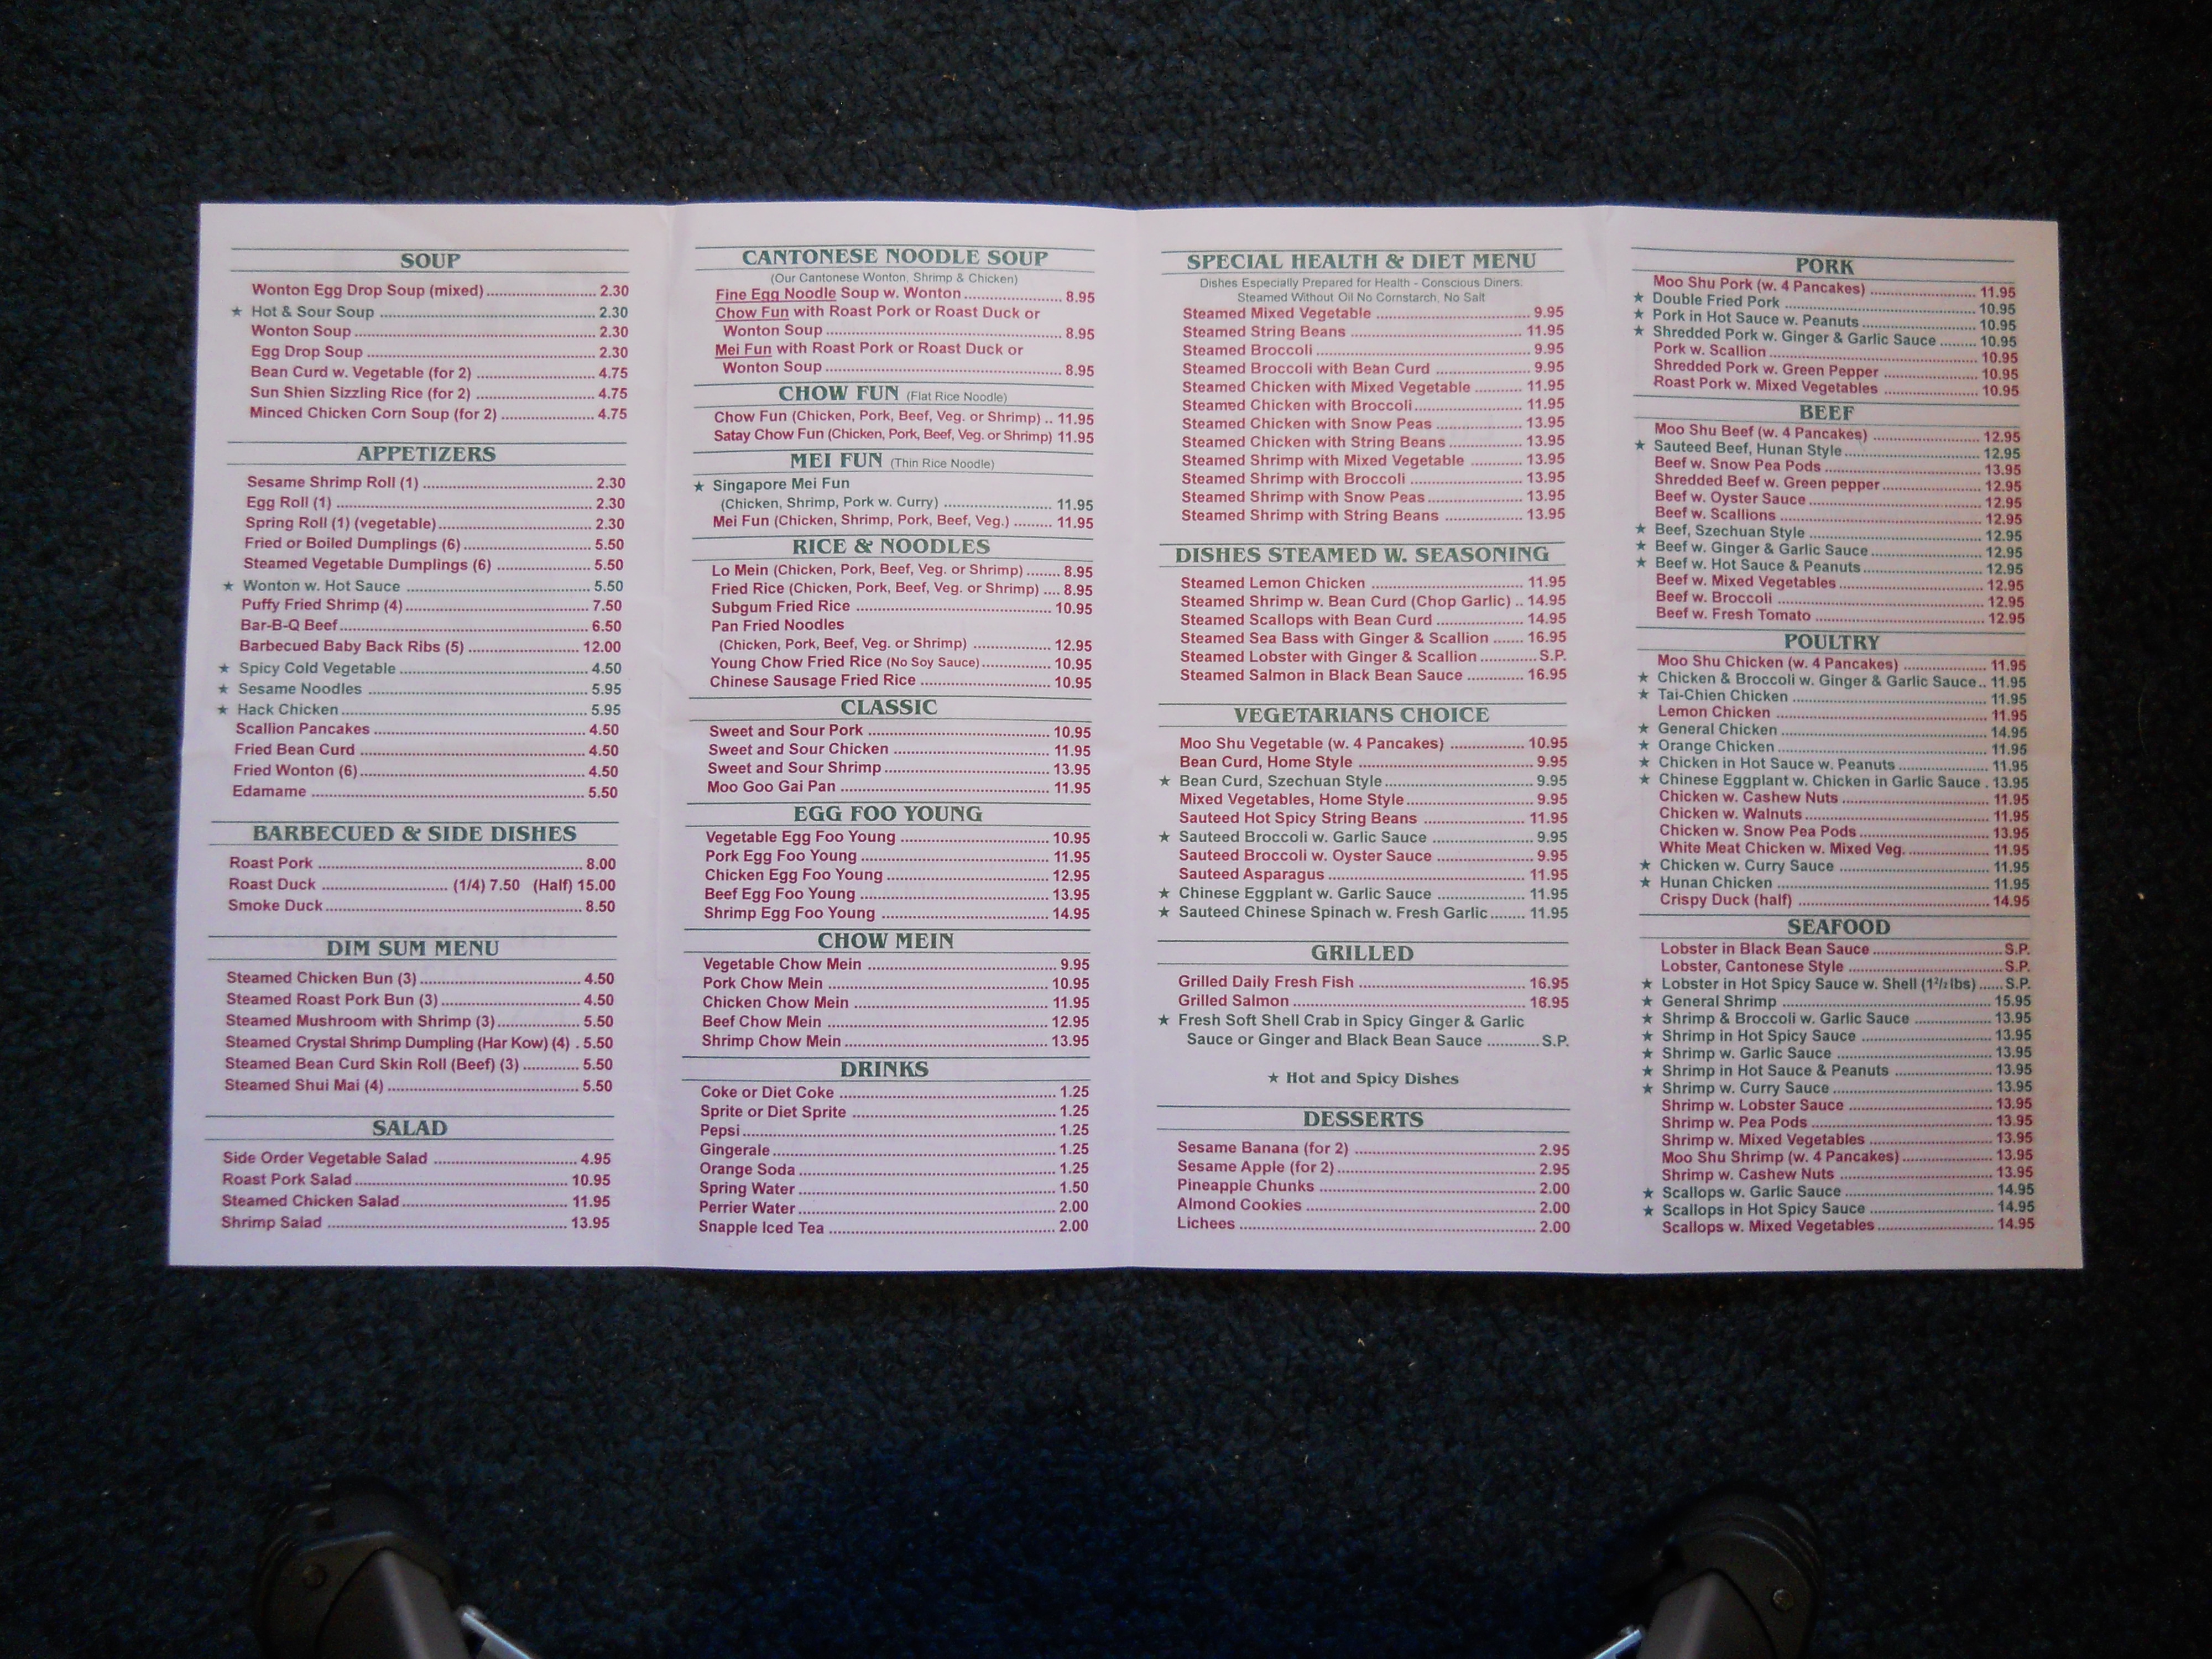 SOUP
Wonton Egg Drop Soup (mixed) ............................ 2.30
★ Hot & Sour Soup ............................ 2.30
Wonton Soup ............................ 2.30
Egg Drop Soup ............................ 2.30
Bean Curd w. Vegetable (for 2) ............................ 4.75
Sun Shien Sizzling Rice (for 2) ............................ 4.75
Minced Chicken Corn Soup (for 2) ............................ 4.75
APPETIZERS
Sesame Shrimp Roll (1) ............................ 2.30
Egg Roll (1) ............................ 2.30
Spring Roll (1) (vegetable) ............................ 2.30
Fried or Boiled Dumplings (6) ............................ 5.50
Steamed Vegetable Dumplings (6) ............................ 5.50
★ Wonton w. Hot Sauce ............................ 5.50
Puffy Fried Shrimp (4) ............................ 7.50
Bar-B-Q Beef ............................ 6.50
Barbecued Baby Back Ribs (5) ............................ 12.00
★ Spicy Cold Vegetable ............................ 4.50
★ Sesame Noodles ............................ 5.95
★ Hack Chicken ............................ 5.95
Scallion Pancakes ............................ 4.50
Fried Bean Curd ............................ 4.50
Fried Wonton (6) ............................ 4.50
Edamame ............................ 5.50
BARBECUED & SIDE DISHES
Roast Pork ............................ 8.00
Roast Duck ............................ (1/4) 7.50 (Half) 15.00
Smoke Duck ............................ 8.50
DIM SUM MENU
Steamed Chicken Bun (3) ............................ 4.50
Steamed Roast Pork Bun (3) ............................ 4.50
Steamed Mushroom with Shrimp (3) ............................ 5.50
Steamed Crystal Shrimp Dumpling (Har Kow) (4) . 5.50
Steamed Bean Curd Skin Roll (Beef) (3) ............................ 5.50
Steamed Shui Mai (4) ............................ 5.50
SALAD
Side Order Vegetable Salad ............................ 4.95
Roast Pork Salad ............................ 10.95
Steamed Chicken Salad ............................ 11.95
Shrimp Salad ............................ 13.95
CANTONESE NOODLE SOUP
(Our Cantonese Wonton, Shrimp & Chicken)
Fine Egg Noodle Soup w. Wonton ............................ 8.95
Chow Fun with Roast Pork or Roast Duck or
Wonton Soup ............................ 8.95
Mei Fun with Roast Pork or Roast Duck or
Wonton Soup ............................ 8.95
CHOW FUN (Flat Rice Noodle)
Chow Fun (Chicken, Pork, Beef, Veg. or Shrimp) .. 11.95
Satay Chow Fun (Chicken, Pork, Beef, Veg. or Shrimp) 11.95
MEI FUN (Thin Rice Noodle)
★ Singapore Mei Fun
(Chicken, Shrimp, Pork w. Curry) ............................ 11.95
Mei Fun (Chicken, Shrimp, Pork, Beef, Veg.) ......... 11.95
RICE & NOODLES
Lo Mein (Chicken, Pork, Beef, Veg. or Shrimp) ........ 8.95
Fried Rice (Chicken, Pork, Beef, Veg. or Shrimp) .... 8.95
Subgum Fried Rice ............................ 10.95
Pan Fried Noodles
(Chicken, Pork, Beef, Veg. or Shrimp) ............................ 12.95
Young Chow Fried Rice (No Soy Sauce) ............................ 10.95
Chinese Sausage Fried Rice ............................ 10.95
CLASSIC
Sweet and Sour Pork ............................ 10.95
Sweet and Sour Chicken ............................ 11.95
Sweet and Sour Shrimp ............................ 13.95
Moo Goo Gai Pan ............................ 11.95
EGG FOO YOUNG
Vegetable Egg Foo Young ............................ 10.95
Pork Egg Foo Young ............................ 11.95
Chicken Egg Foo Young ............................ 12.95
Beef Egg Foo Young ............................ 13.95
Shrimp Egg Foo Young ............................ 14.95
CHOW MEIN
Vegetable Chow Mein ............................ 9.95
Pork Chow Mein ............................ 10.95
Chicken Chow Mein ............................ 11.95
Beef Chow Mein ............................ 12.95
Shrimp Chow Mein ............................ 13.95
DRINKS
Coke or Diet Coke ............................ 1.25
Sprite or Diet Sprite ............................ 1.25
Pepsi ............................ 1.25
Gingerale ............................ 1.25
Orange Soda ............................ 1.25
Spring Water ............................ 1.50
Perrier Water ............................ 2.00
Snapple Iced Tea ............................ 2.00
SPECIAL HEALTH & DIET MENU
Dishes Especially Prepared for Health - Conscious Diners.
Steamed Without Oil No Cornstarch, No Salt
Steamed Mixed Vegetable ............................ 9.95
Steamed String Beans ............................ 11.95
Steamed Broccoli ............................ 9.95
Steamed Broccoli with Bean Curd ............................ 9.95
Steamed Chicken with Mixed Vegetable ............ 11.95
Steamed Chicken with Broccoli ............................ 11.95
Steamed Chicken with Snow Peas ............................ 13.95
Steamed Chicken with String Beans ............................ 13.95
Steamed Shrimp with Mixed Vegetable ............ 13.95
Steamed Shrimp with Broccoli ............................ 13.95
Steamed Shrimp with Snow Peas ............................ 13.95
Steamed Shrimp with String Beans ............................ 13.95
DISHES STEAMED W. SEASONING
Steamed Lemon Chicken ............................ 11.95
Steamed Shrimp w. Bean Curd (Chop Garlic) .. 14.95
Steamed Scallops with Bean Curd ............................ 14.95
Steamed Sea Bass with Ginger & Scallion ....... 16.95
Steamed Lobster with Ginger & Scallion ............. S.P.
Steamed Salmon in Black Bean Sauce ............ 16.95
VEGETARIANS CHOICE
Moo Shu Vegetable (w. 4 Pancakes) ............................ 10.95
Bean Curd, Home Style ............................ 9.95
★ Bean Curd, Szechuan Style ............................ 9.95
Mixed Vegetables, Home Style ............................ 9.95
Sauteed Hot Spicy String Beans ............................ 11.95
★ Sauteed Broccoli w. Garlic Sauce ............................ 9.95
Sauteed Broccoli w. Oyster Sauce ............................ 9.95
Sauteed Asparagus ............................ 11.95
★ Chinese Eggplant w. Garlic Sauce ............................ 11.95
★ Sauteed Chinese Spinach w. Fresh Garlic ........ 11.95
GRILLED
Grilled Daily Fresh Fish ............................ 16.95
Grilled Salmon ............................ 16.95
★ Fresh Soft Shell Crab in Spicy Ginger & Garlic
Sauce or Ginger and Black Bean Sauce ............ S.P.
★ Hot and Spicy Dishes
DESSERTS
Sesame Banana (for 2) ............................ 2.95
Sesame Apple (for 2) ............................ 2.95
Pineapple Chunks ............................ 2.00
Almond Cookies ............................ 2.00
Lichees ............................ 2.00
PORK
Moo Shu Pork (w. 4 Pancakes) ............................ 11.95
★ Double Fried Pork ............................ 10.95
★ Pork in Hot Sauce w. Peanuts ............................ 10.95
★ Shredded Pork w. Ginger & Garlic Sauce ......... 10.95
Pork w. Scallion ............................ 10.95
Shredded Pork w. Green Pepper ............................ 10.95
Roast Pork w. Mixed Vegetables ............................ 10.95
BEEF
Moo Shu Beef (w. 4 Pancakes) ............................ 12.95
★ Sauteed Beef, Hunan Style ............................ 12.95
Beef w. Snow Pea Pods ............................ 13.95
Shredded Beef w. Green pepper ............................ 12.95
Beef w. Oyster Sauce ............................ 12.95
Beef w. Scallions ............................ 12.95
★ Beef, Szechuan Style ............................ 12.95
★ Beef w. Ginger & Garlic Sauce ............................ 12.95
★ Beef w. Hot Sauce & Peanuts ............................ 12.95
Beef w. Mixed Vegetables ............................ 12.95
Beef w. Broccoli ............................ 12.95
Beef w. Fresh Tomato ............................ 12.95
POULTRY
Moo Shu Chicken (w. 4 Pancakes) ............................ 11.95
★ Chicken & Broccoli w. Ginger & Garlic Sauce .. 11.95
★ Tai-Chien Chicken ............................ 11.95
Lemon Chicken ............................ 11.95
★ General Chicken ............................ 14.95
★ Orange Chicken ............................ 11.95
★ Chicken in Hot Sauce w. Peanuts ............................ 11.95
★ Chinese Eggplant w. Chicken in Garlic Sauce . 13.95
Chicken w. Cashew Nuts ............................ 11.95
Chicken w. Walnuts ............................ 11.95
Chicken w. Snow Pea Pods ............................ 13.95
White Meat Chicken w. Mixed Veg. ............................ 11.95
★ Chicken w. Curry Sauce ............................ 11.95
★ Hunan Chicken ............................ 11.95
Crispy Duck (half) ............................ 14.95
SEAFOOD
Lobster in Black Bean Sauce ............................ S.P.
Lobster, Cantonese Style ............................ S.P.
★ Lobster in Hot Spicy Sauce w. Shell (1½ lbs) ...... S.P.
★ General Shrimp ............................ 15.95
★ Shrimp & Broccoli w. Garlic Sauce ............................ 13.95
★ Shrimp in Hot Spicy Sauce ............................ 13.95
★ Shrimp w. Garlic Sauce ............................ 13.95
★ Shrimp in Hot Sauce & Peanuts ............................ 13.95
★ Shrimp w. Curry Sauce ............................ 13.95
Shrimp w. Lobster Sauce ............................ 13.95
Shrimp w. Pea Pods ............................ 13.95
Shrimp w. Mixed Vegetables ............................ 13.95
Moo Shu Shrimp (w. 4 Pancakes) ............................ 13.95
Shrimp w. Cashew Nuts ............................ 13.95
★ Scallops w. Garlic Sauce ............................ 14.95
★ Scallops in Hot Spicy Sauce ............................ 14.95
Scallops w. Mixed Vegetables ............................ 14.95